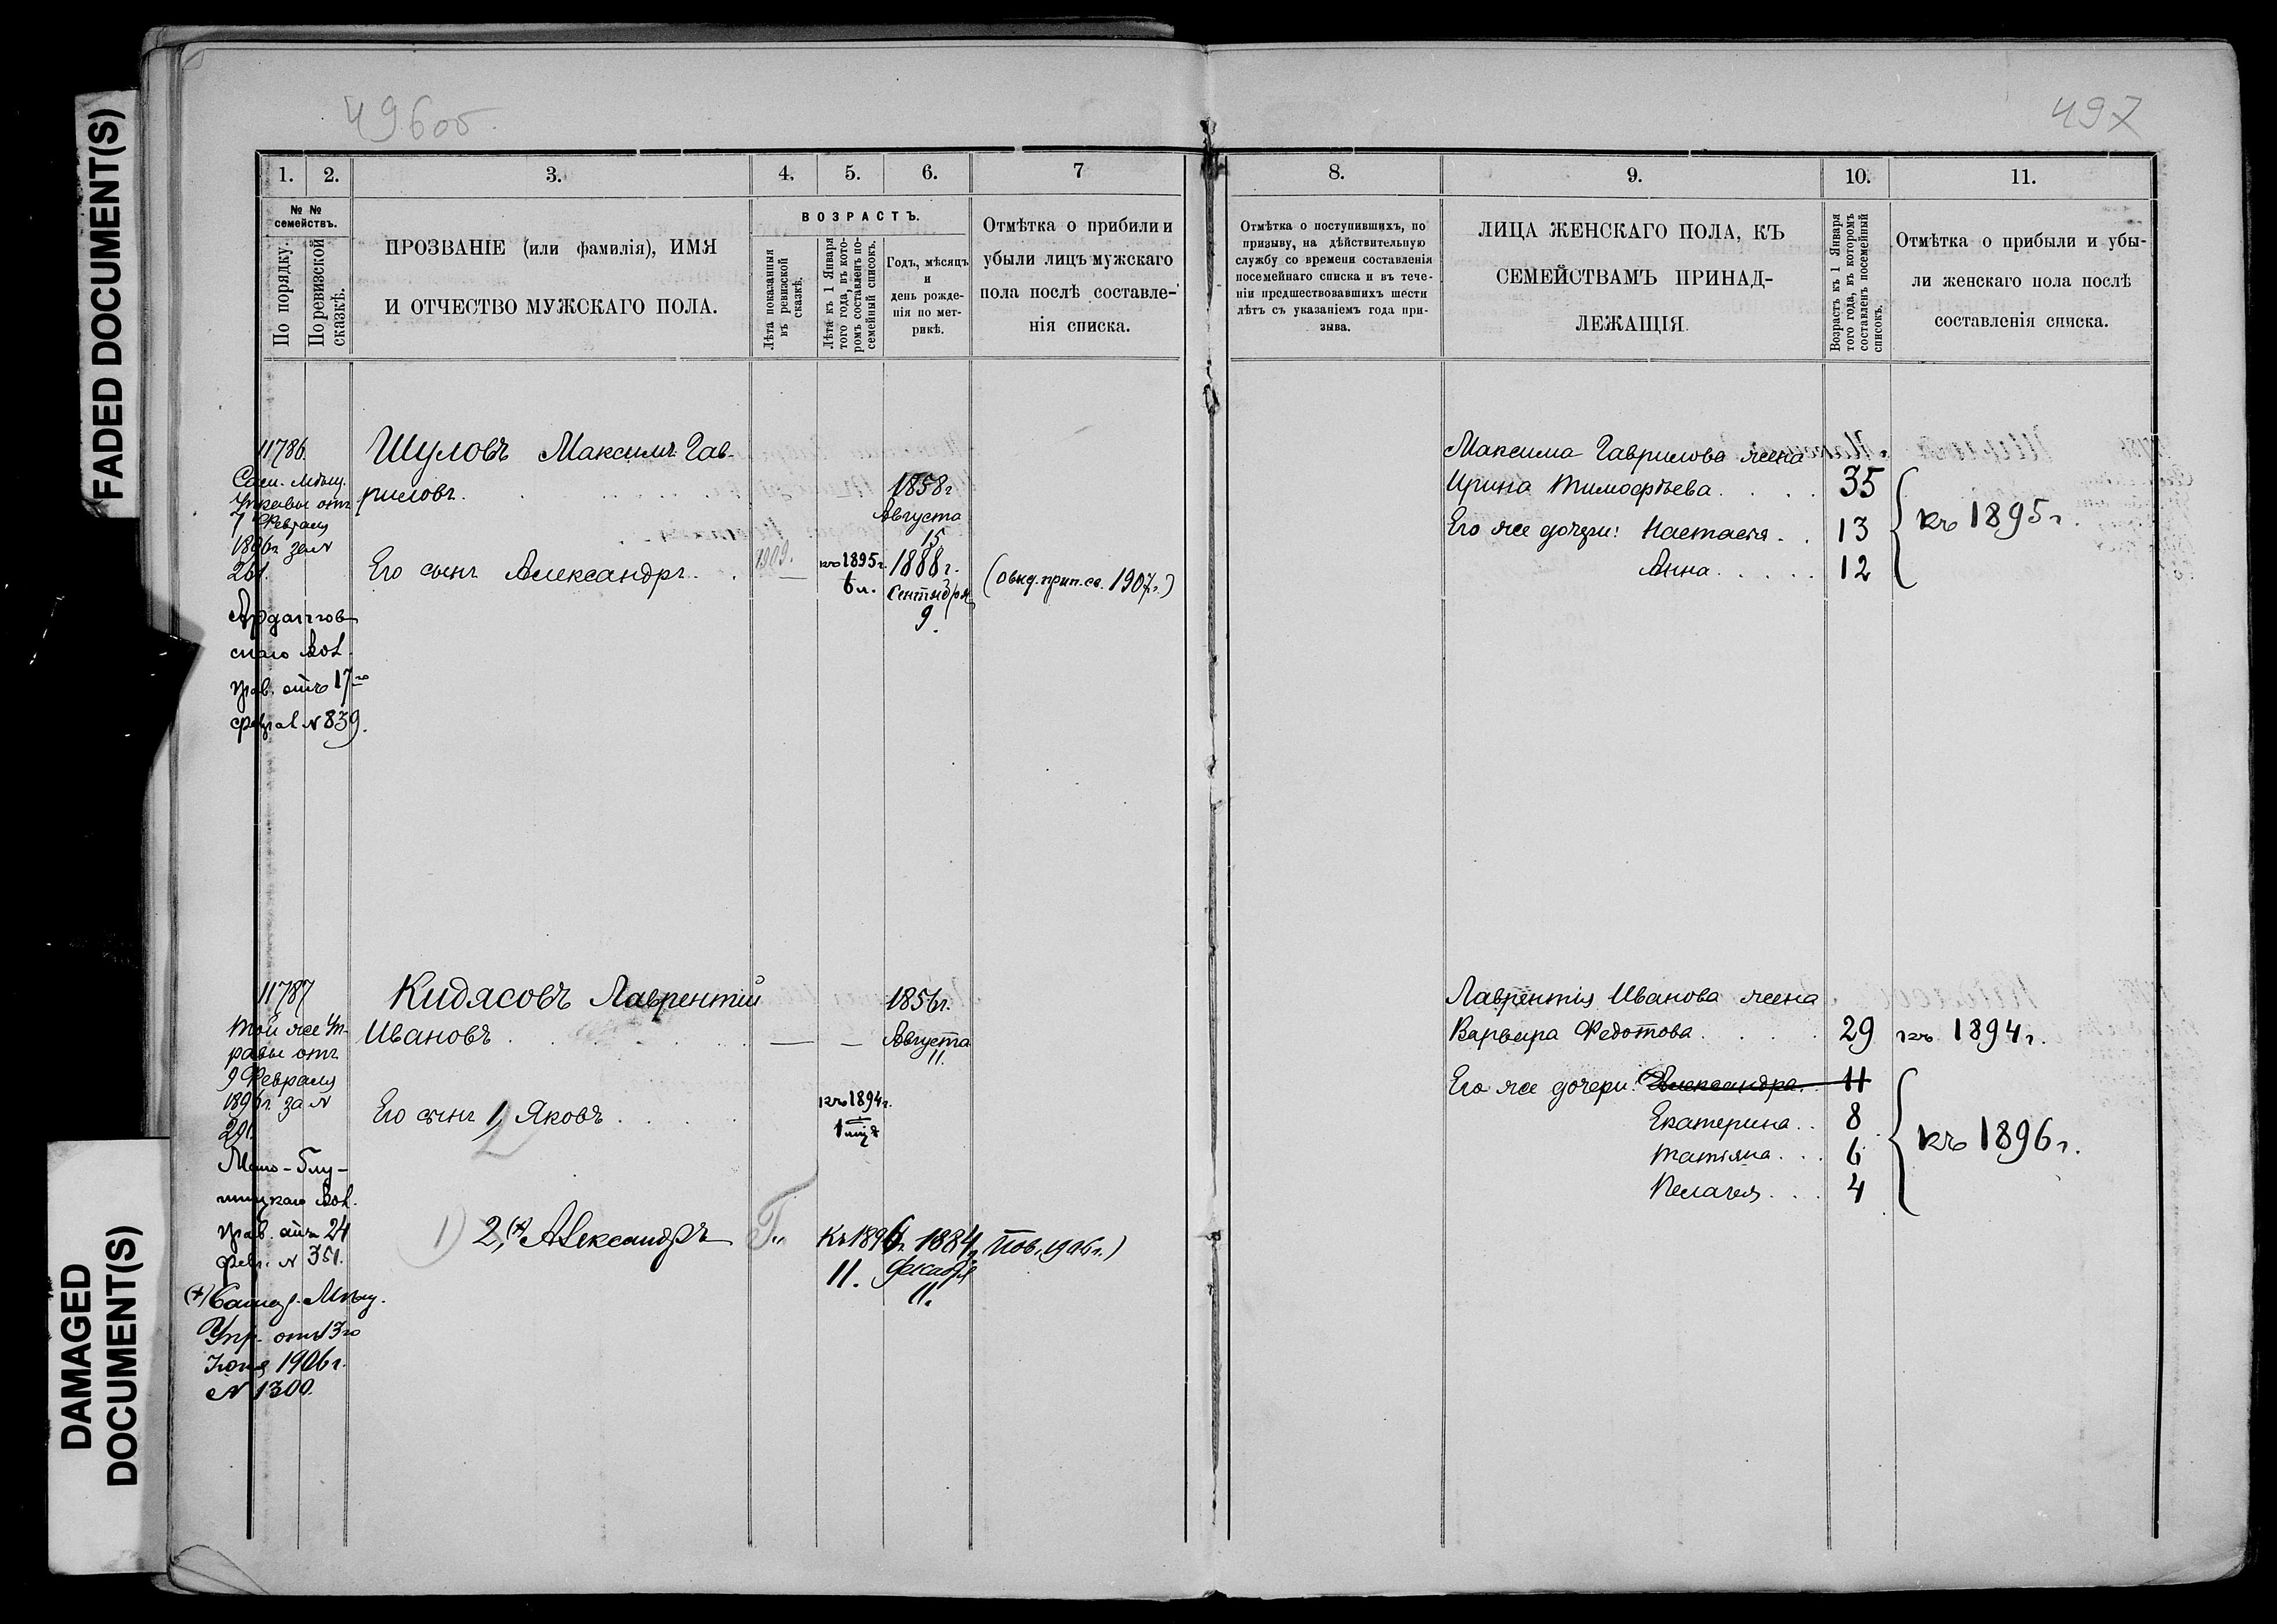 FADED DOCUMENT(S)
DAMAGED
DOCUMENT(S)
496об.
1. 2. 3. 4. 5. 6. 7
№ №
семействъ.
По порядку.
По ревизской
сказкѣ.
ПРОЗВАНІЕ (или фамилія), ИМЯ
И ОТЧЕСТВО МУЖСКАГО ПОЛА.
ВОЗРАСТЪ.
Лѣта показанныя
въ ревизской
сказкѣ.
Лѣта къ 1 Января
того года, въ кото-
ромъ составленъ по-
семейный списокъ.
Годъ, мѣсяцъ
и
день рожде-
нія по мет-
рикѣ.
Отмѣтка о прибыли и
убыли лицъ мужскаго
пола послѣ составле-
нія списка.
11786.
Сам. Мѣщ.
Управы отъ
7 Февраля
1896г. за №
261.
Ардатов
скаго Вол.
прав. отъ 17го
феврал № 839.
Шуловъ Максимъ Гав-
риловъ.
1858г
Августа
15
Его сынъ Александръ.
1909.
—
къ 1895г.
6 л.
1888г.
Сентября
9.
1907г.)
11787
Той же Уп-
равы отъ
9 Февраля
1896г. за №
291.
Вол.
прав. отъ 24
февр. № 351.
(+) Самар. Мѣщ.
Упр. отъ 13го
Іюня 1906г.
№ 1300.
Кидясовъ Лаврентій
Ивановъ
— —
1856г.
Августа
11.
Его сынъ 1, Яковъ
2
къ 1894г.
1 
1) 2, (+) Александръ
Къ 1896г
11.
1884г
Декабря
11.
1906г.)
497
8. 9. 10. 11.
Отмѣтка о поступившихъ, по
призыву, на дѣйствительную
службу со времени составленія
посемейнаго списка и въ тече-
ніи предшествовавшихъ шести
лѣтъ съ указаніемъ года при-
зыва.
ЛИЦА ЖЕНСКАГО ПОЛА, КЪ
СЕМЕЙСТВАМЪ ПРИНАД-
ЛЕЖАЩІЯ.
Возрастъ къ 1 Января
того года, въ которомъ
составленъ посемейный
списокъ.
Отмѣтка о прибыли и убы-
ли женскаго пола послѣ
составленія списка.
Максима Гаврилова жена
Ирина Тимофѣева. 35
Его же дочери: Настасья. 13
Анна. 12
къ 1895г.
Лаврентія Иванова жена
Варвара Федотова. 29 къ 1894г.
Его же дочери: Александра. 11
Екатерина. 8
Татіяна. 6
Пелагея. 4
къ 1896г.